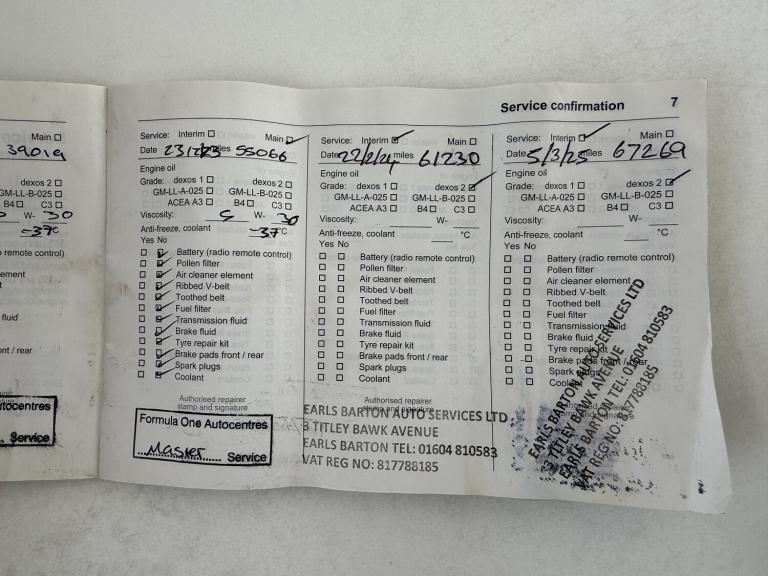 Service confirmation 7
Main ☐
39019
dexos 2 ☐
GM-LL-B-025 ☐
C3 ☐
W- 30
-37°C
remote control)
element
fluid
nt / rear
tocentres
Service
Service: Interim ☐ Main ☑
Date miles 55066
Engine oil
Grade: dexos 1 ☐ dexos 2 ☐
GM-LL-A-025 ☐ GM-LL-B-025 ☐
ACEA A3 ☐ B4 ☐ C3 ☐
Viscosity: W- 30
Anti-freeze, coolant -37°C
Yes No
Battery (radio remote control)
Pollen filter
Air cleaner element
Ribbed V-belt
Toothed belt
Fuel filter
Transmission fluid
Brake fluid
Tyre repair kit
Brake pads front / rear
Spark plugs
Coolant
Authorised repairer
stamp and signature
Formula One Autocentres
Master Service
Service: Interim ☑ Main ☐
Date 22/2/24 miles 61230
Engine oil
Grade: dexos 1 ☐ dexos 2 ☑
GM-LL-A-025 ☐ GM-LL-B-025 ☐
ACEA A3 ☐ B4 ☐ C3 ☐
Viscosity: W-
Anti-freeze, coolant °C
Yes No
Battery (radio remote control)
Pollen filter
Air cleaner element
Ribbed V-belt
Toothed belt
Fuel filter
Transmission fluid
Brake fluid
Tyre repair kit
Brake pads front / rear
Spark plugs
Coolant
Authorised repairer
stamp and signature
EARLS BARTON AUTO SERVICES LTD
3 TITLEY BAWK AVENUE
EARLS BARTON TEL: 01604 810583
VAT REG NO: 817788185
Service: Interim ☑ Main ☐
Date 5/3/25 miles 67269
Engine oil
Grade: dexos 1 ☐ dexos 2 ☑
GM-LL-A-025 ☐ GM-LL-B-025 ☐
ACEA A3 ☐ B4 ☐ C3 ☐
Viscosity: W-
Anti-freeze, coolant °C
Yes No
Battery (radio remote control)
Pollen filter
Air cleaner element
Ribbed V-belt
Toothed belt
Fuel filter
Transmission fluid
Brake fluid
Tyre repair kit
Brake pads front / rear
Spark plugs
Coolant
EARLS BARTON AUTO SERVICES LTD
3 TITLEY BAWK AVENUE
EARLS BARTON TEL: 01604 810583
VAT REG NO: 817788185